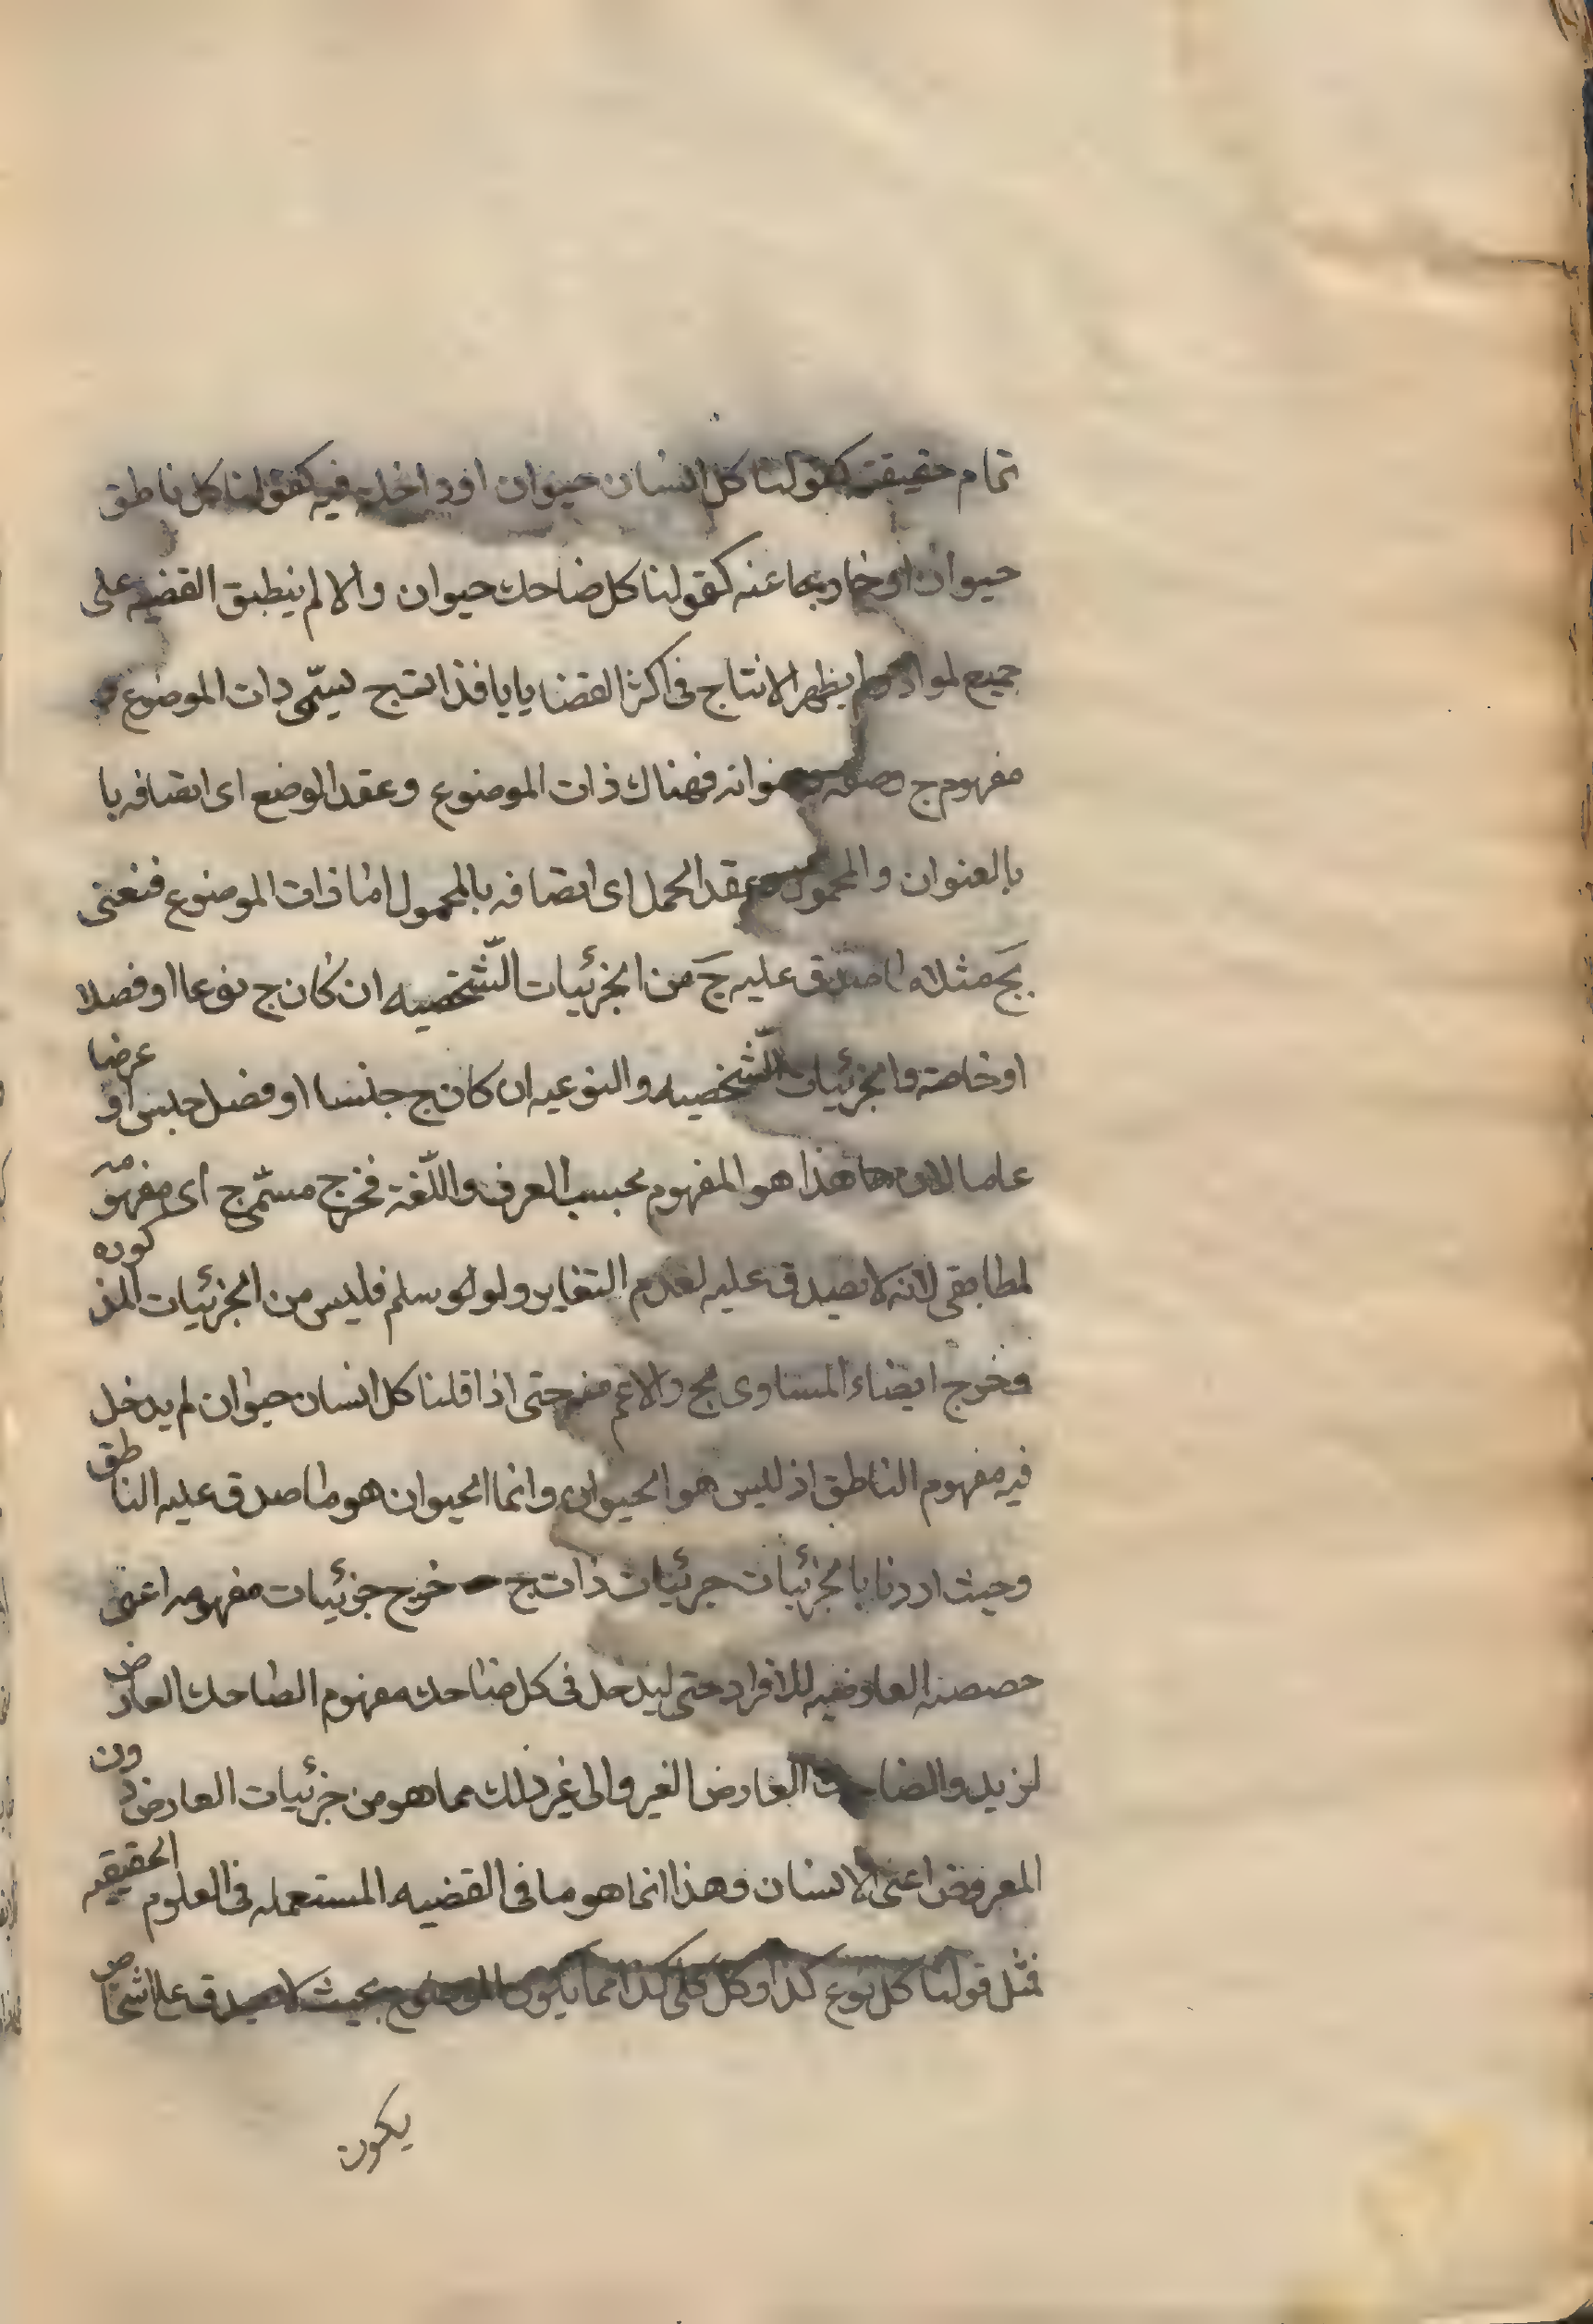 تمام حقيقته كقولنا كل انسان حيوان او داخله فيه كقولنا كل ناطق
حيوان او خارجا عنه كقولنا كل ضاحك حيوان والا لم ينطبق القضيه على
جميع لمواد ولم يظهر الانتاج فى اكثر القضا يايا فذات ج يسمّى ذات الموضوع و
مفهوم ج وصفه وعنوانه فهناك ذات الموضوع وعقد الوضع اى اتصافه با
بالعنوان والمحمول وعقد الحمل اى اتصافه بالمحمول اما ذات الموضوع فنعنى
بج مثلا ما صدق عليه ج من الجزئيات الشّخصيه ان كان ج نوعا او فصلا
او خاصة والجزئيات الشّخصيه والنوعيه ان كان ج جنسا او فصل جنس او عرضا
عاما هذا هو المفهوم بحسب العرف واللّغة فخرج مسمّى ج اى مفهومه
لمطابقى لانه لا يصدق عليه لعدم التغاير ولو لو سلم فليس من الجزئيات المذكوره
وخرج ايضاء المساوى لج والاعم منه حتى اذا قلنا كل انسان حيوان لم يدخل
فيه مفهوم الناطق اذ ليس هو الحيوان وانما الحيوان هو ما صدق عليه الناطق
وحيث اردنا بالجزئيات جزئيات ذات ج خرج جزئيات مفهومه اعنى
حصصه العارضيه للافراد حتى ليدخل فى كل ضاحك مفهوم الضاحك العارض
لزيد والضاحك العارض الغير والى غير ذلك مما هو من جزئيات العارض دون
المعروض اعنى الانسان وهذا انما هو ما فى القضيه المستعمله فى العلوم الحقيقيه
فمثل قولنا كل نوع كذا وكل كلى كذا مما يكون الموضوع بحيث لا يصدق على اشخاص
يكون